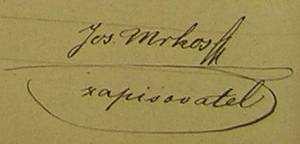 Jos. Mrkos
zapisovatel